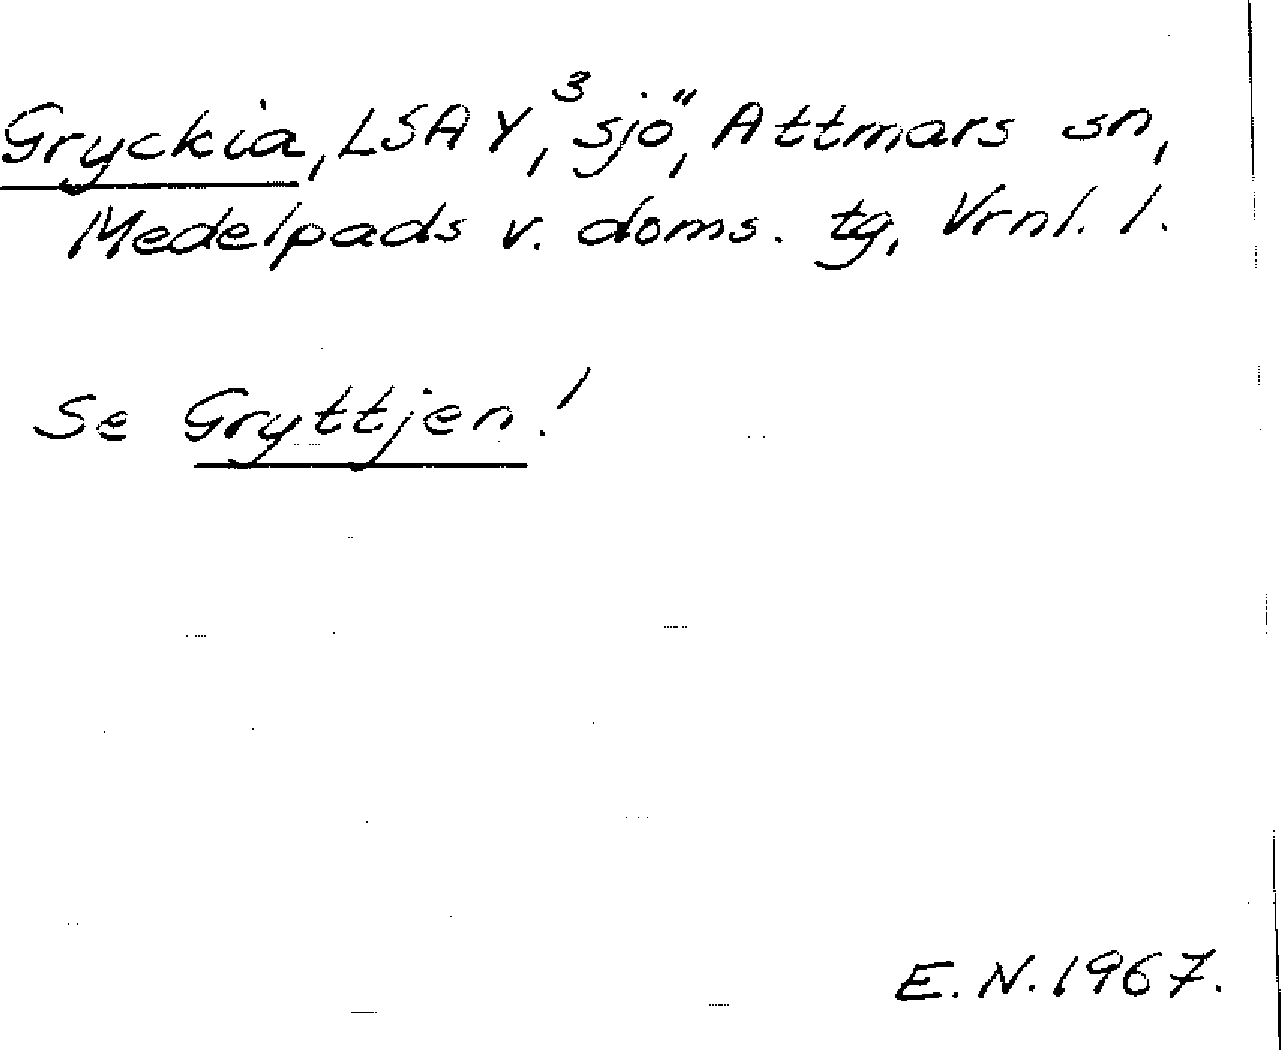 Gryckia, LSA Y³, sjö, Attmars sn,
Medelpads v. doms. tg, Vrnl. l.
Se Gryttjen!
E. N. 1967.